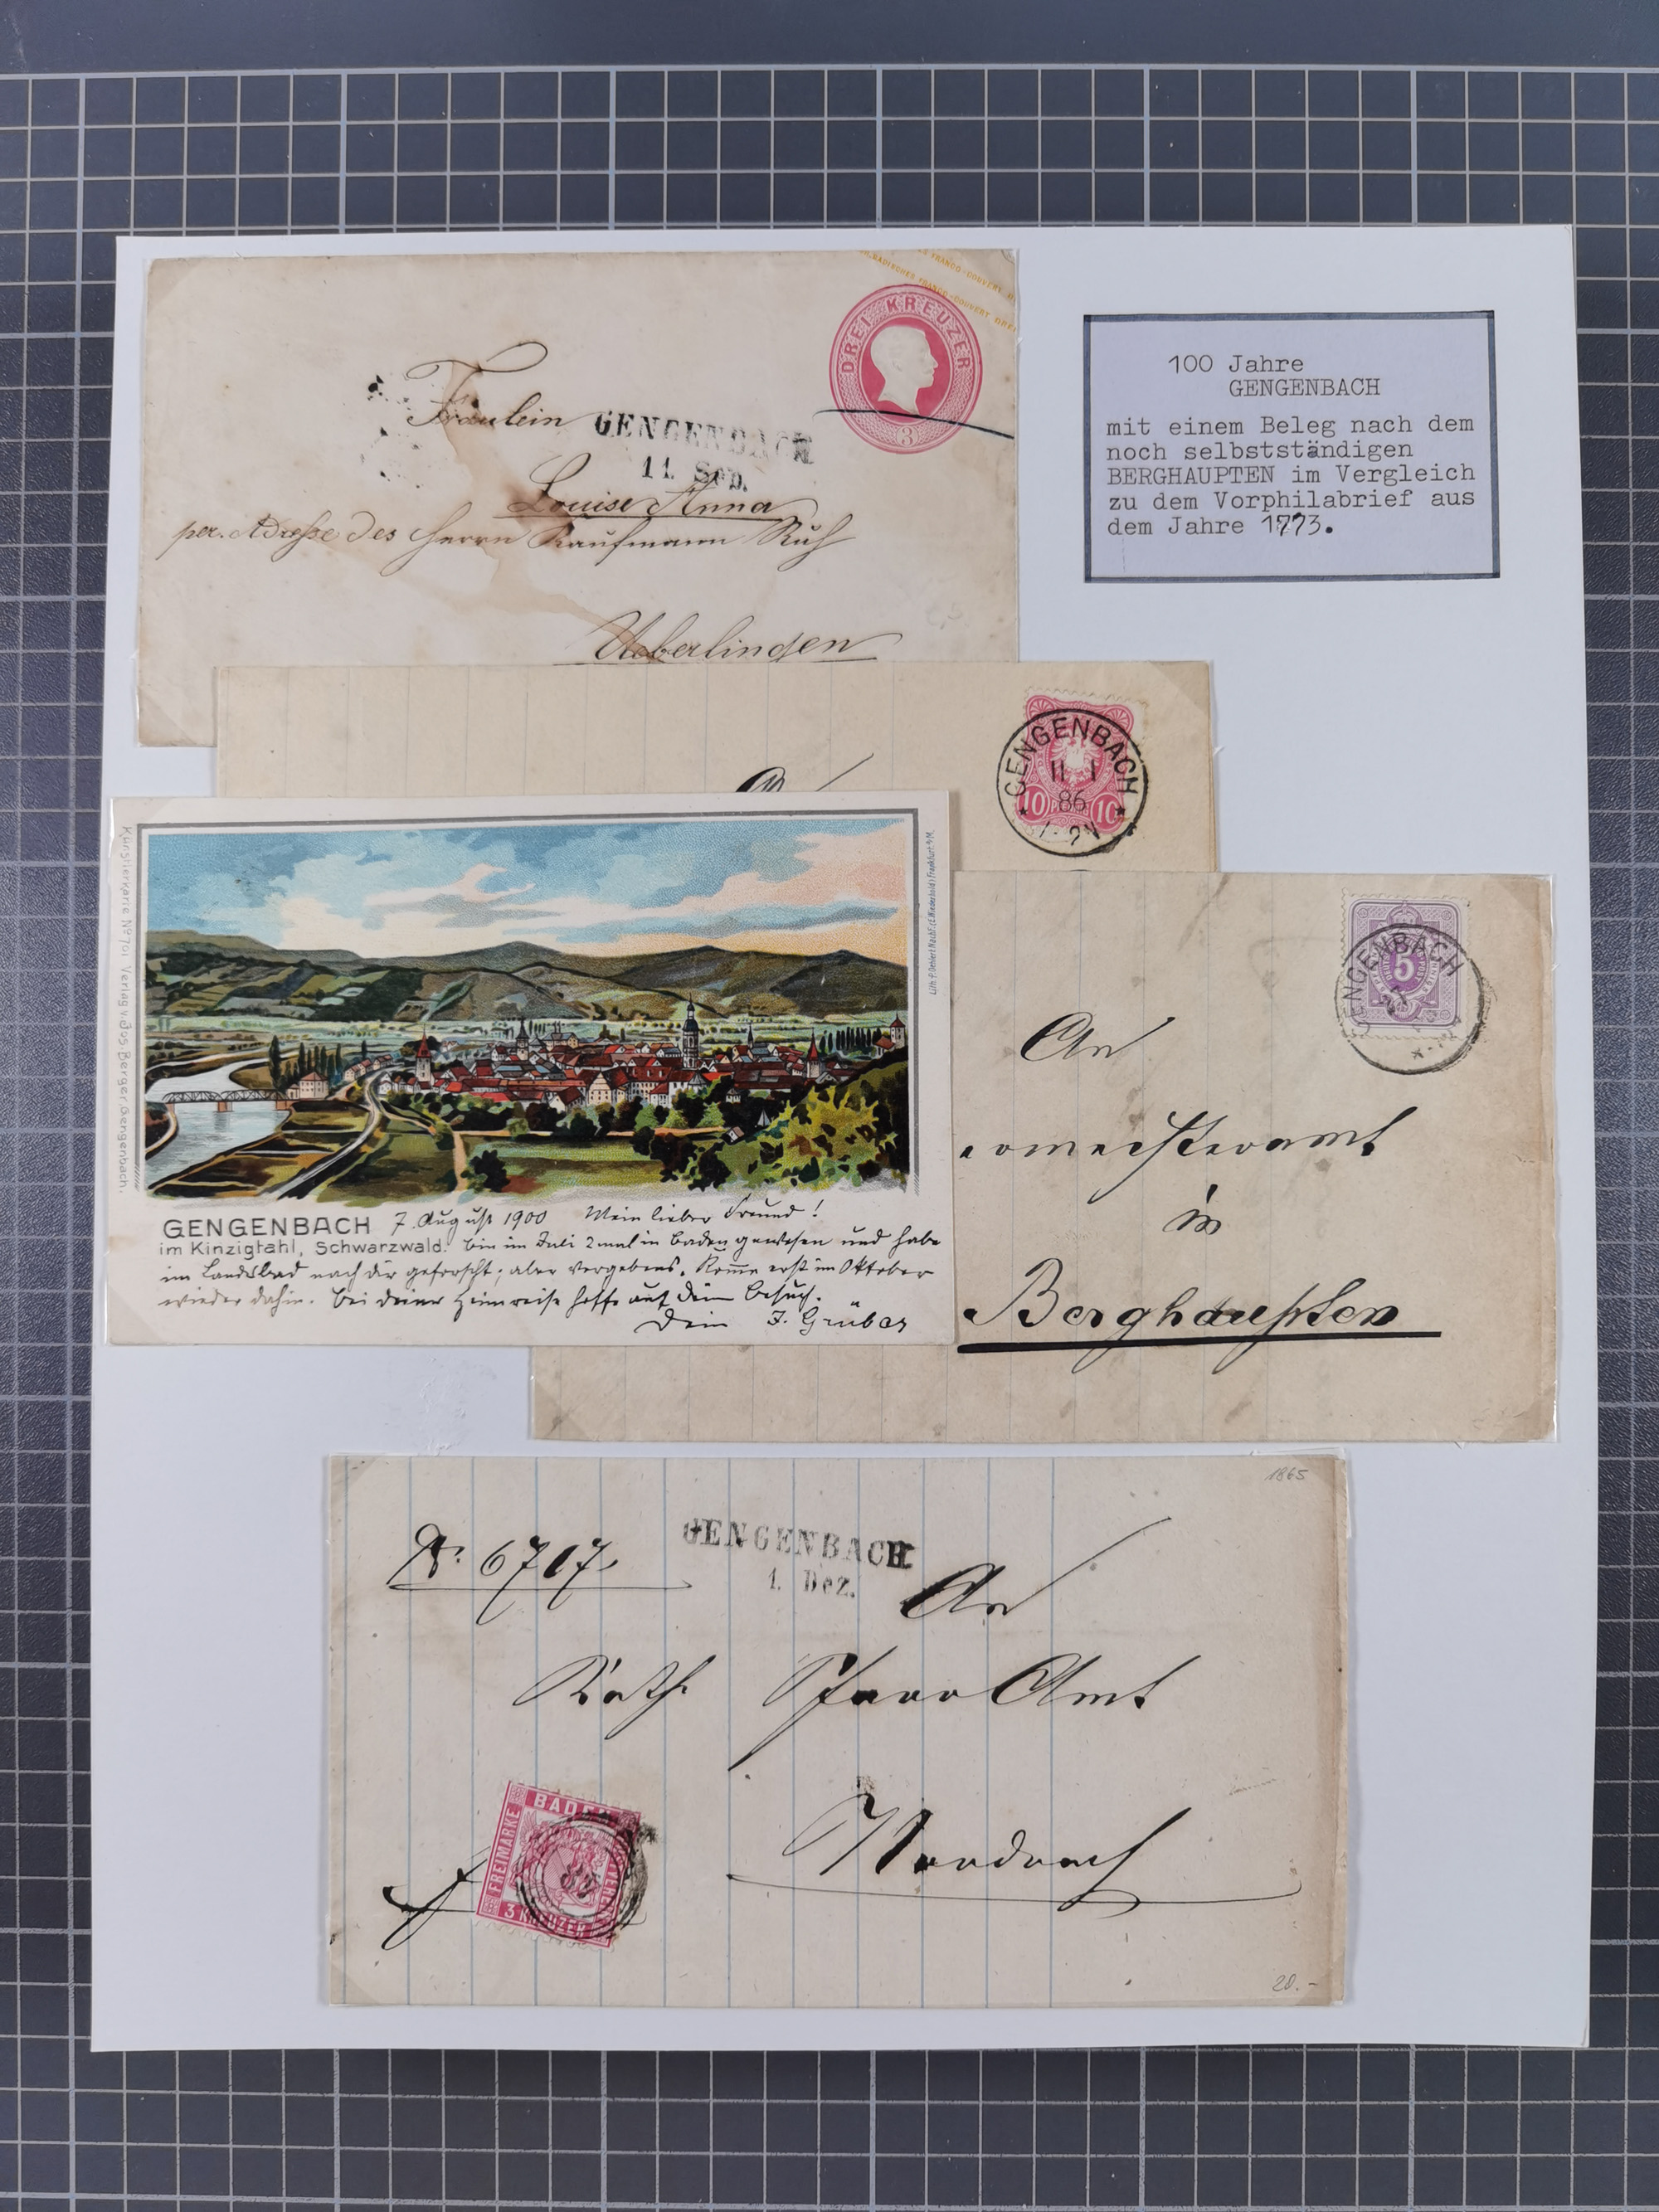 BADISCHES FRANCO-COUVERT
DREI KREUZER
3
Fräulein
GENGENBACH
11. Sep.
Louise Anna
per. Adresse des Herrn Kaufmann Ruf
Ueberlingen
100 Jahre
GENGENBACH
mit einem Beleg nach dem
noch selbstständigen
BERGHAUPTEN im Vergleich
zu dem Vorphilabrief aus
dem Jahre 1773.
GENGENBACH
11 1
86
1-2N
10 10
Künstlerkarte No 701 Verlag v. Jos. Berger, Gengenbach.
GENGENBACH 7. August 1900 Mein lieber Freund!
im Kinzigtahl, Schwarzwald. bin im Juli 2 mal in Baden gewesen und habe
im Landsbad nach dir geforscht; aber vergebens. Komme erst im Oktober
wieder dahin. Bei deiner Heimreise hoffe auf dein Besuch.
Dein J. Grüber
GENGENBACH
5
An
in
Berghaupten
1865
No. 6717.
GENGENBACH
1. Dez.
An
Kath. Pfarr Amt
Nordrach
BADEN
FREIMARKE
3 KREUZER
20.-